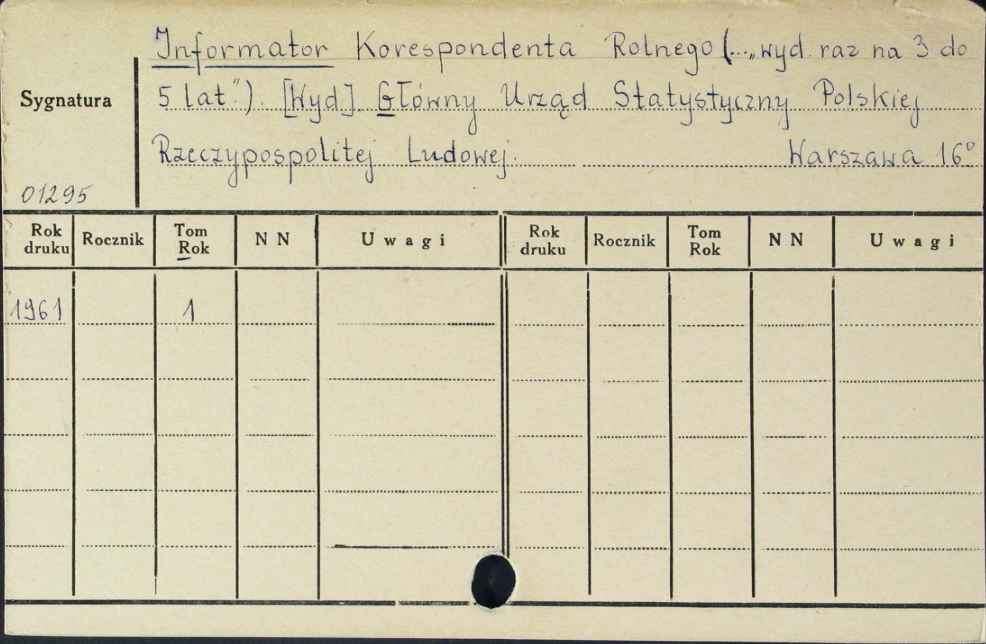 Informator Korespondenta Rolnego (..."wyd. raz na 3 do
5 lat."). [Wyd.] Główny Urząd Statystyczny Polskiej
Rzeczypospolitej Ludowej. Warszawa 16°
Sygnatura
01295
Rok druku Rocznik Tom Rok N N Uwagi Rok druku Rocznik Tom Rok N N Uwagi
1961 1